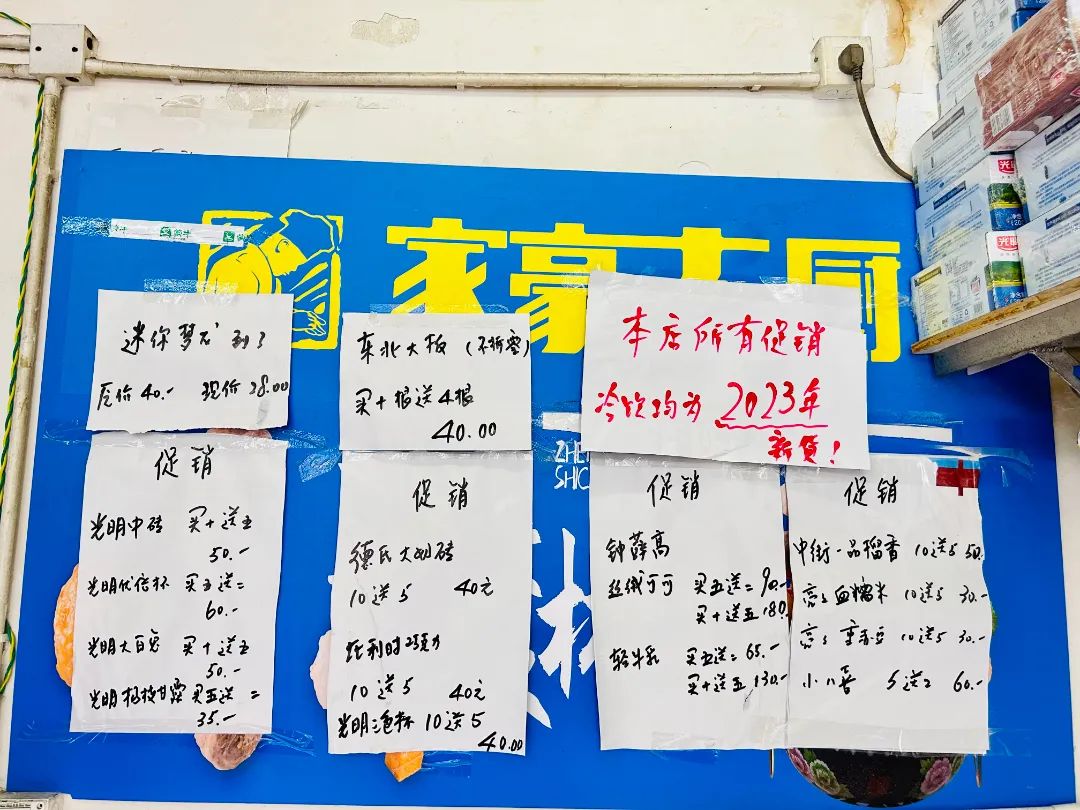 家豪大厨
迷你梦龙到了
原价40.- 现价28.00
东北大板 (不拆零)
买十根送4根
40.00
本店所有促销
冷饮均为2023年
新货!
ZHE
SHIC
促销
光明中砖 买十送五
50.-
光明优倍杯 买五送二
60.-
光明大白兔 买十送五
50.-
光明杨枝甘露 买五送二
35.-
促销
德氏大奶砖
10送5 40元
比利时巧克力
10送5 40元
光明三色杯 10送5
40.00
促销
钟薛高
丝绒可可 买五送二 90.-
买十送五 180.-
轻牛乳 买五送二 65.-
买十送五 130.-
促销
中街一品榴香 10送5 50.-
血糯米 10送5 30.-
10送5 30.-
5送2 60.-
光明
光明